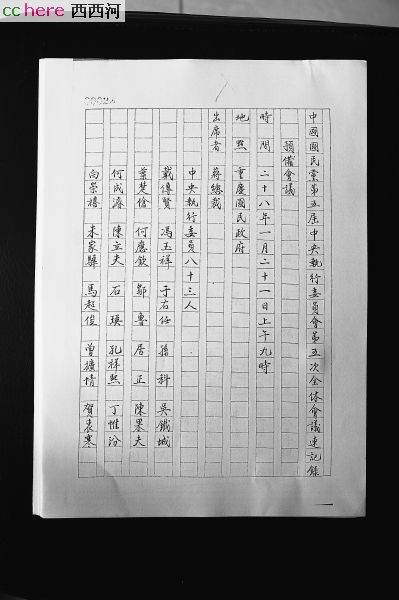 cchere 西西河
00024
中國國民黨第五屆中央執行委員會第五次全体會議速記錄
預備會議
時間 二十八年一月二十一日上午九時
地點 重慶國民政府
出席者 蔣總裁
中央執行委員八十三人
戴傳賢 馮玉祥 于右任 孫科 吳鐵城
葉楚傖 何應欽 鄒魯 居正 陳果夫
何成濬 陳立夫 石瑛 孔祥熙 丁惟汾
向崇禧 朱家驊 馬超俊 曾擴情 賀衷寒